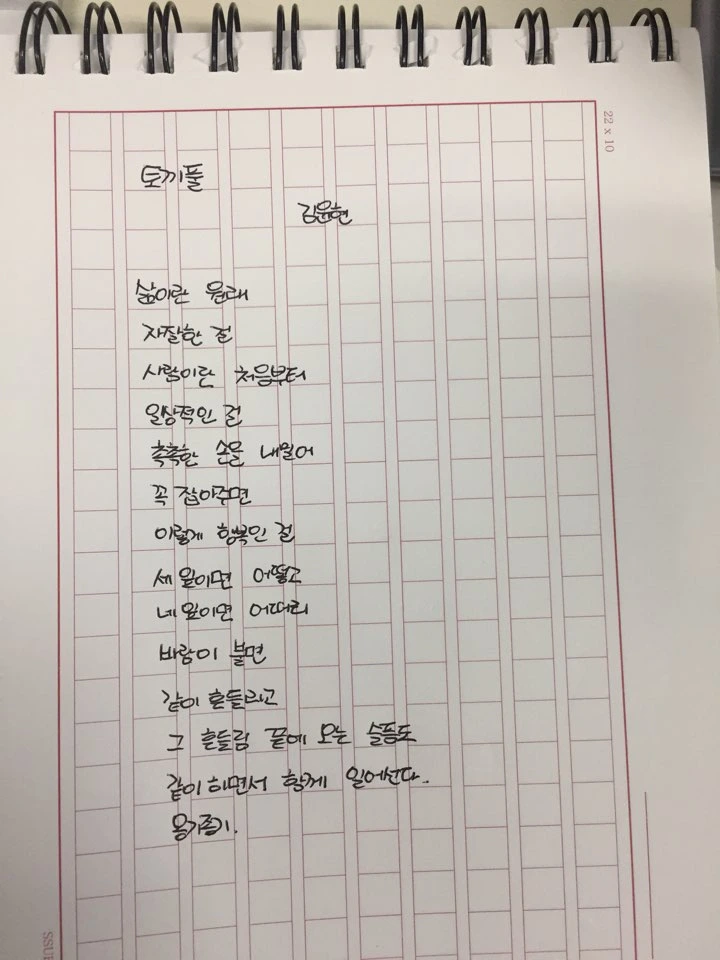 22 x 10
토끼풀
김윤현
삶이란 원래
자잘한 걸
사람이란 처음부터
일상적인 걸
촉촉한 손을 내밀어
꼭 잡아주면
이렇게 행복인 걸
세 잎이면 어떻고
네 잎이면 어떠리
바람이 불면
같이 흔들리고
그 흔들림 끝에 오는 슬픔도
같이 하면서 함께 일어선다.
옹기종기.